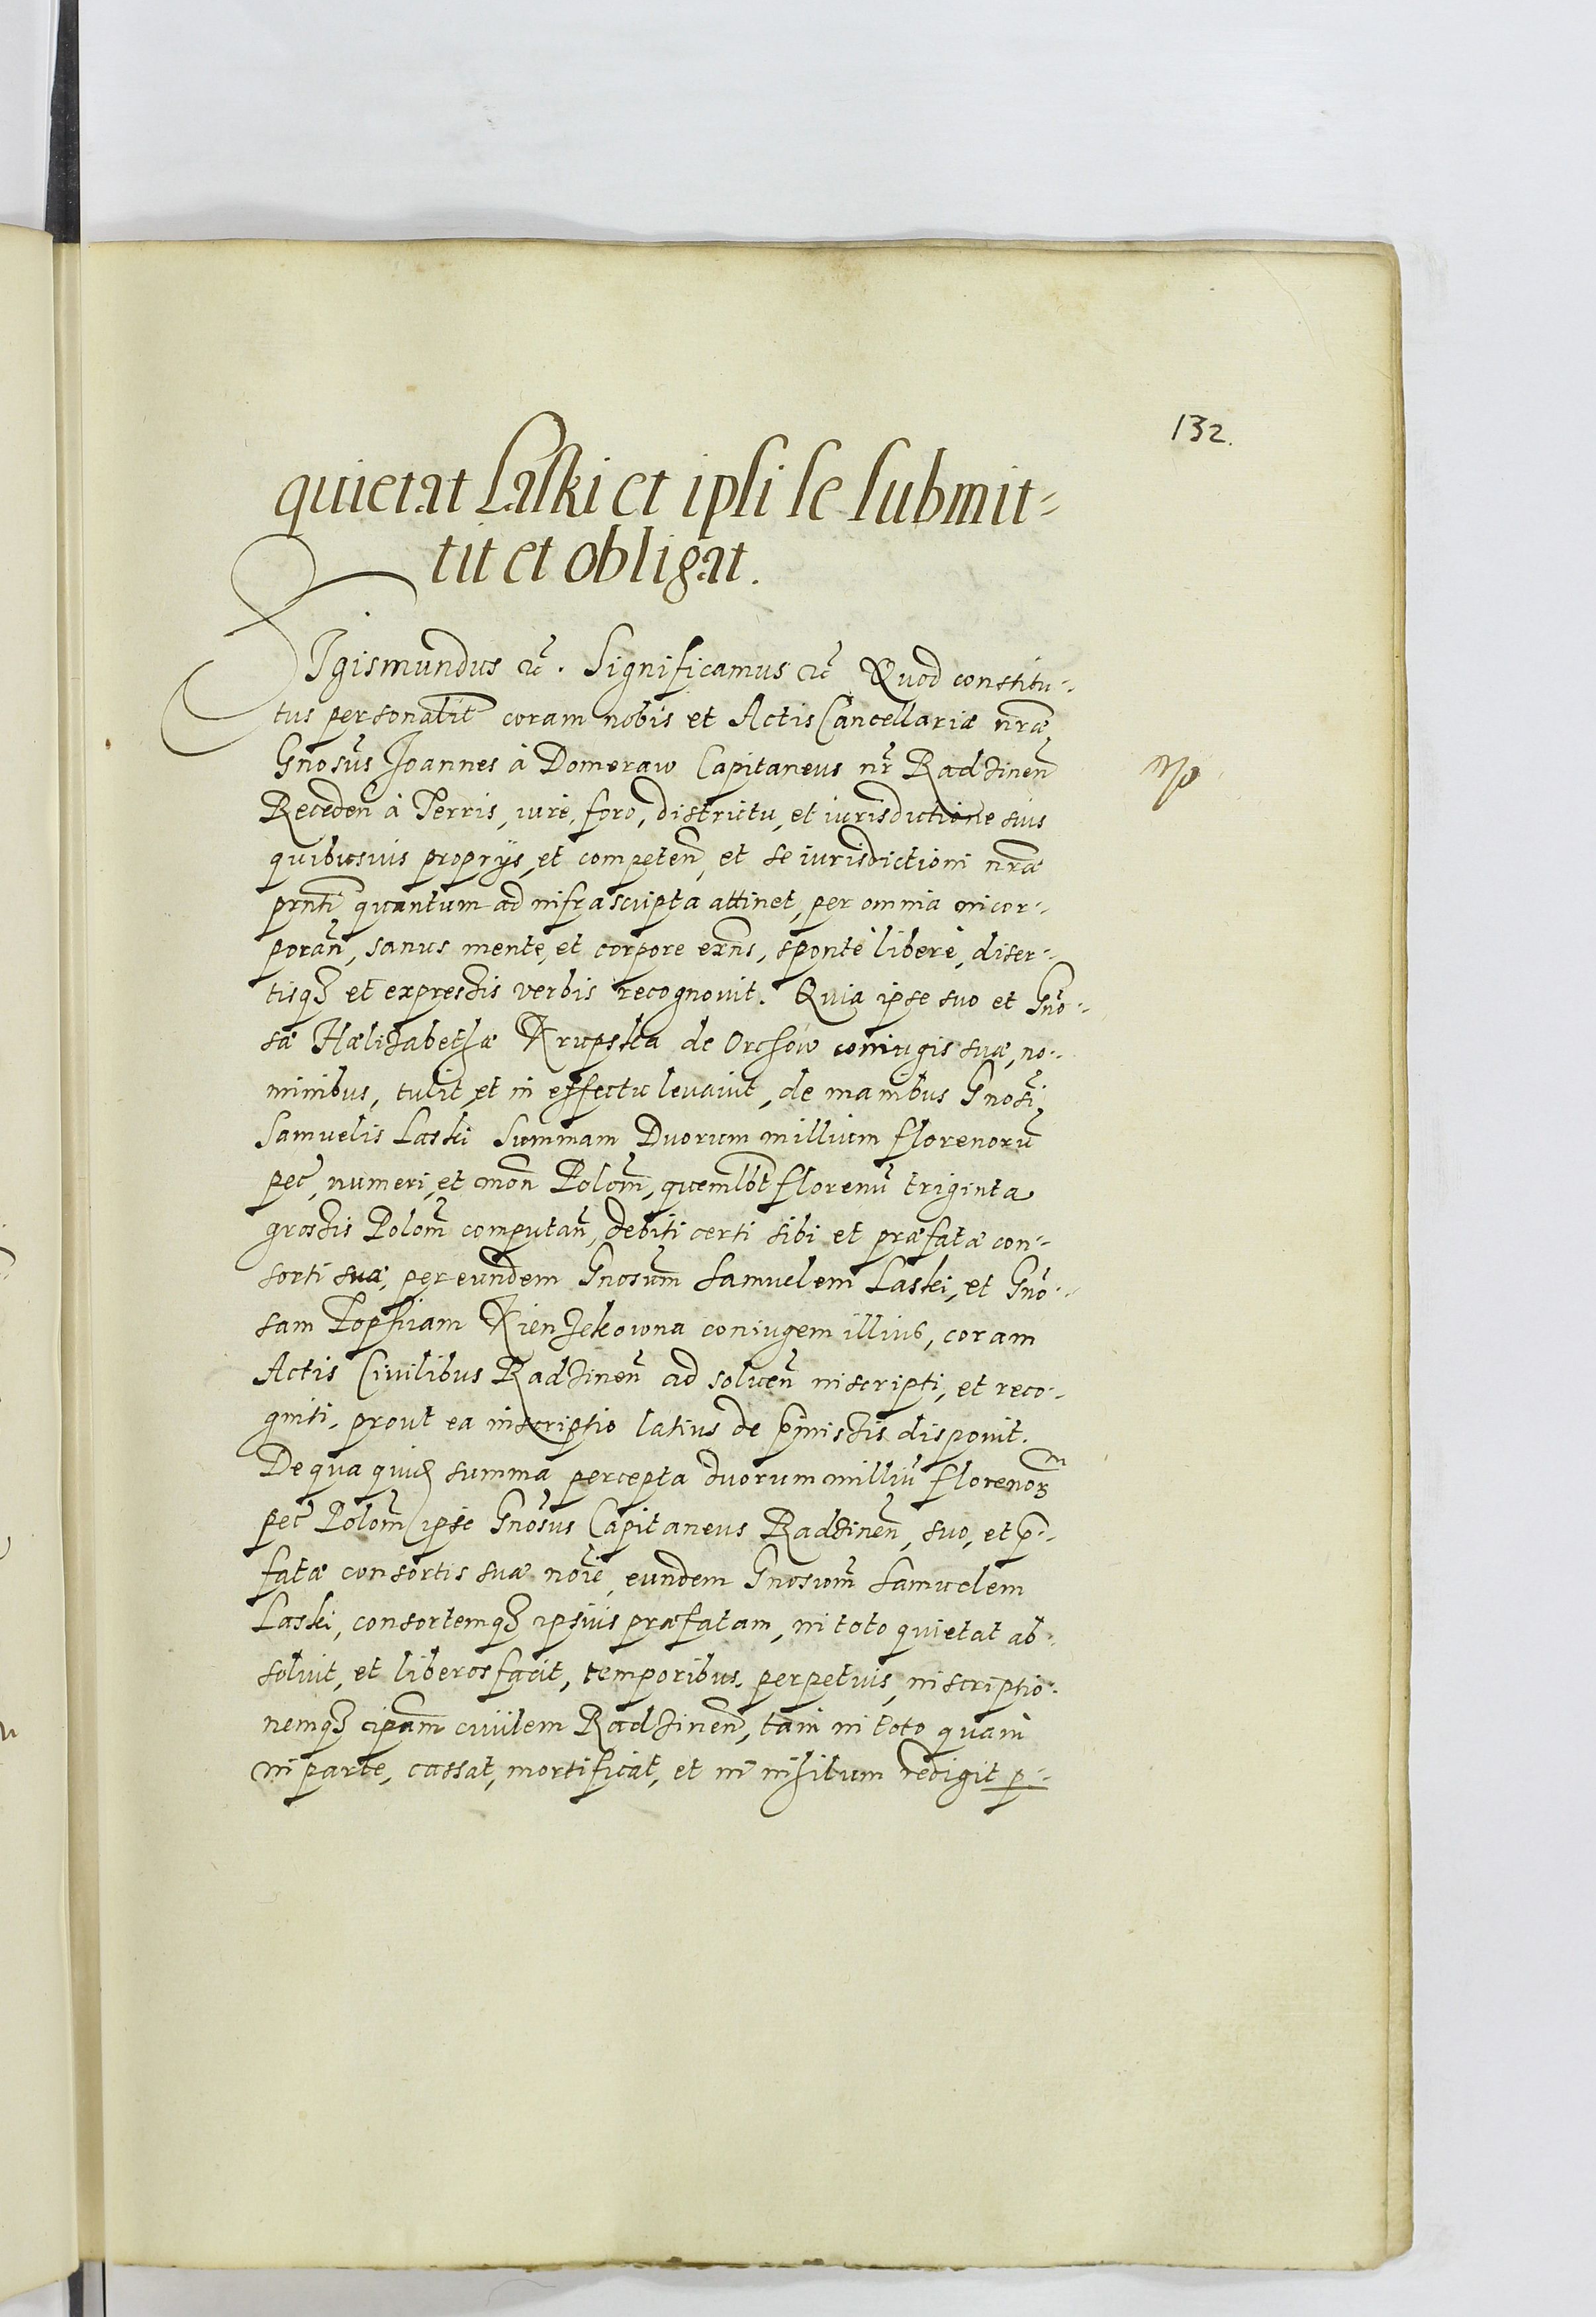 132.
quietat Laski et ipsi se submit-
tit et obligat.
SIgismundus etc̃. Significamus etc̃ Quod constitu-
tus personalit̃ coram nobis et Actis Cancellariæ nr̃æ
Gnosũs Joannes à Domeraw Capitaneus nr̃ Radzinen̄
Receden̄ à Terris, iure, foro, districtu, et iurisdictione suis
quibusuis proprijs, et competen̄, et se iurisdictioni nr̃æ
prn̄ti quantum ad infrascripta attinet, per omnia incor-
poran̄, sanus mente, et corpore exn̄s, sponte libere, diser-
tisq₃ et expressis verbis recognouit. Quia ipse suo et Gño-
sæ Hælizabethæ Krupska de Orchow coniugis suæ, no-
minibus, tulit, et in effectu leuauit, de manibus Gnosĩ
Samuelis Laski Summam Duorum millium florenorũ
pec̃, numeri, et mon̄ Polon̄, quemlb̄t florenũ triginta
grossis Polon̄ computan̄, debiti certi sibi et præfatæ con-
sorti suæ, per eundem Gnosũm Samuelem Laski, et Gño-
sam Zophiam Kienzekowna coniugem illius, coram
Actis Ciuilibus Radzinen̄ ad soluen̄ inscripti, et reco-
gniti, prout ea inscriptio latius de p̄missis disponit.
De qua quid₃ summa percepta duorum milliũ florenor̄m
pec̃ Polon̄ ipse Gnosũs Capitaneus Radzinen̄, suo, et p̄-
fatæ consortis suæ noĩe, eundem Gnosũm Samuelem
Laski, consortemq₃ ipsius præfatam, in toto quietat ab-
soluit, et liberos facit, temporibus perpetuis, inscriptio-
nemq₃ ipsam ciuilem Radzinen̄, tam in toto quam
in parte, cassat, mortificat, et in nihilum redigit p-